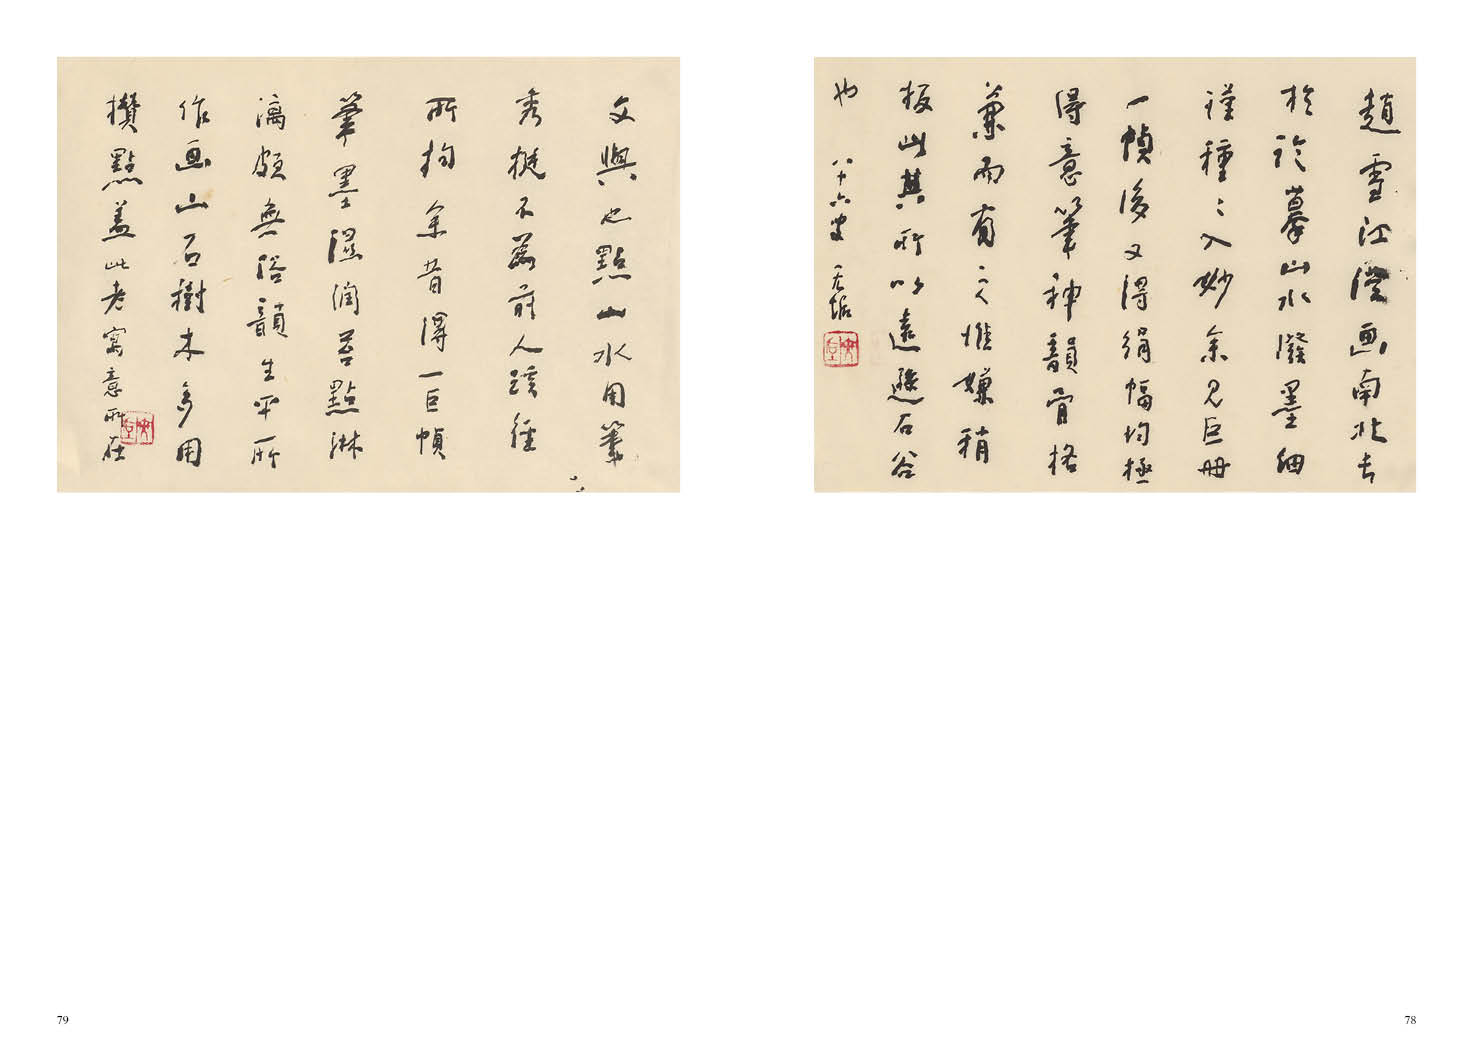 趙雪江澄画南北長
於臨摹山水潑墨細
謹種〻入妙余見巨冊
一幀後又得絹幅均極
得意筆神韻骨格
兼而有之惟嫌稍
板此其所以遠遜石谷
也 八十六叟
78
文與也點山水用筆
秀挺不為前人蹊徑
所拘余昔得一巨幀
筆墨濕潤苔點淋
漓頗無俗韻生平所
作画山石樹木多用
攢點蓋此老寫意所在
79